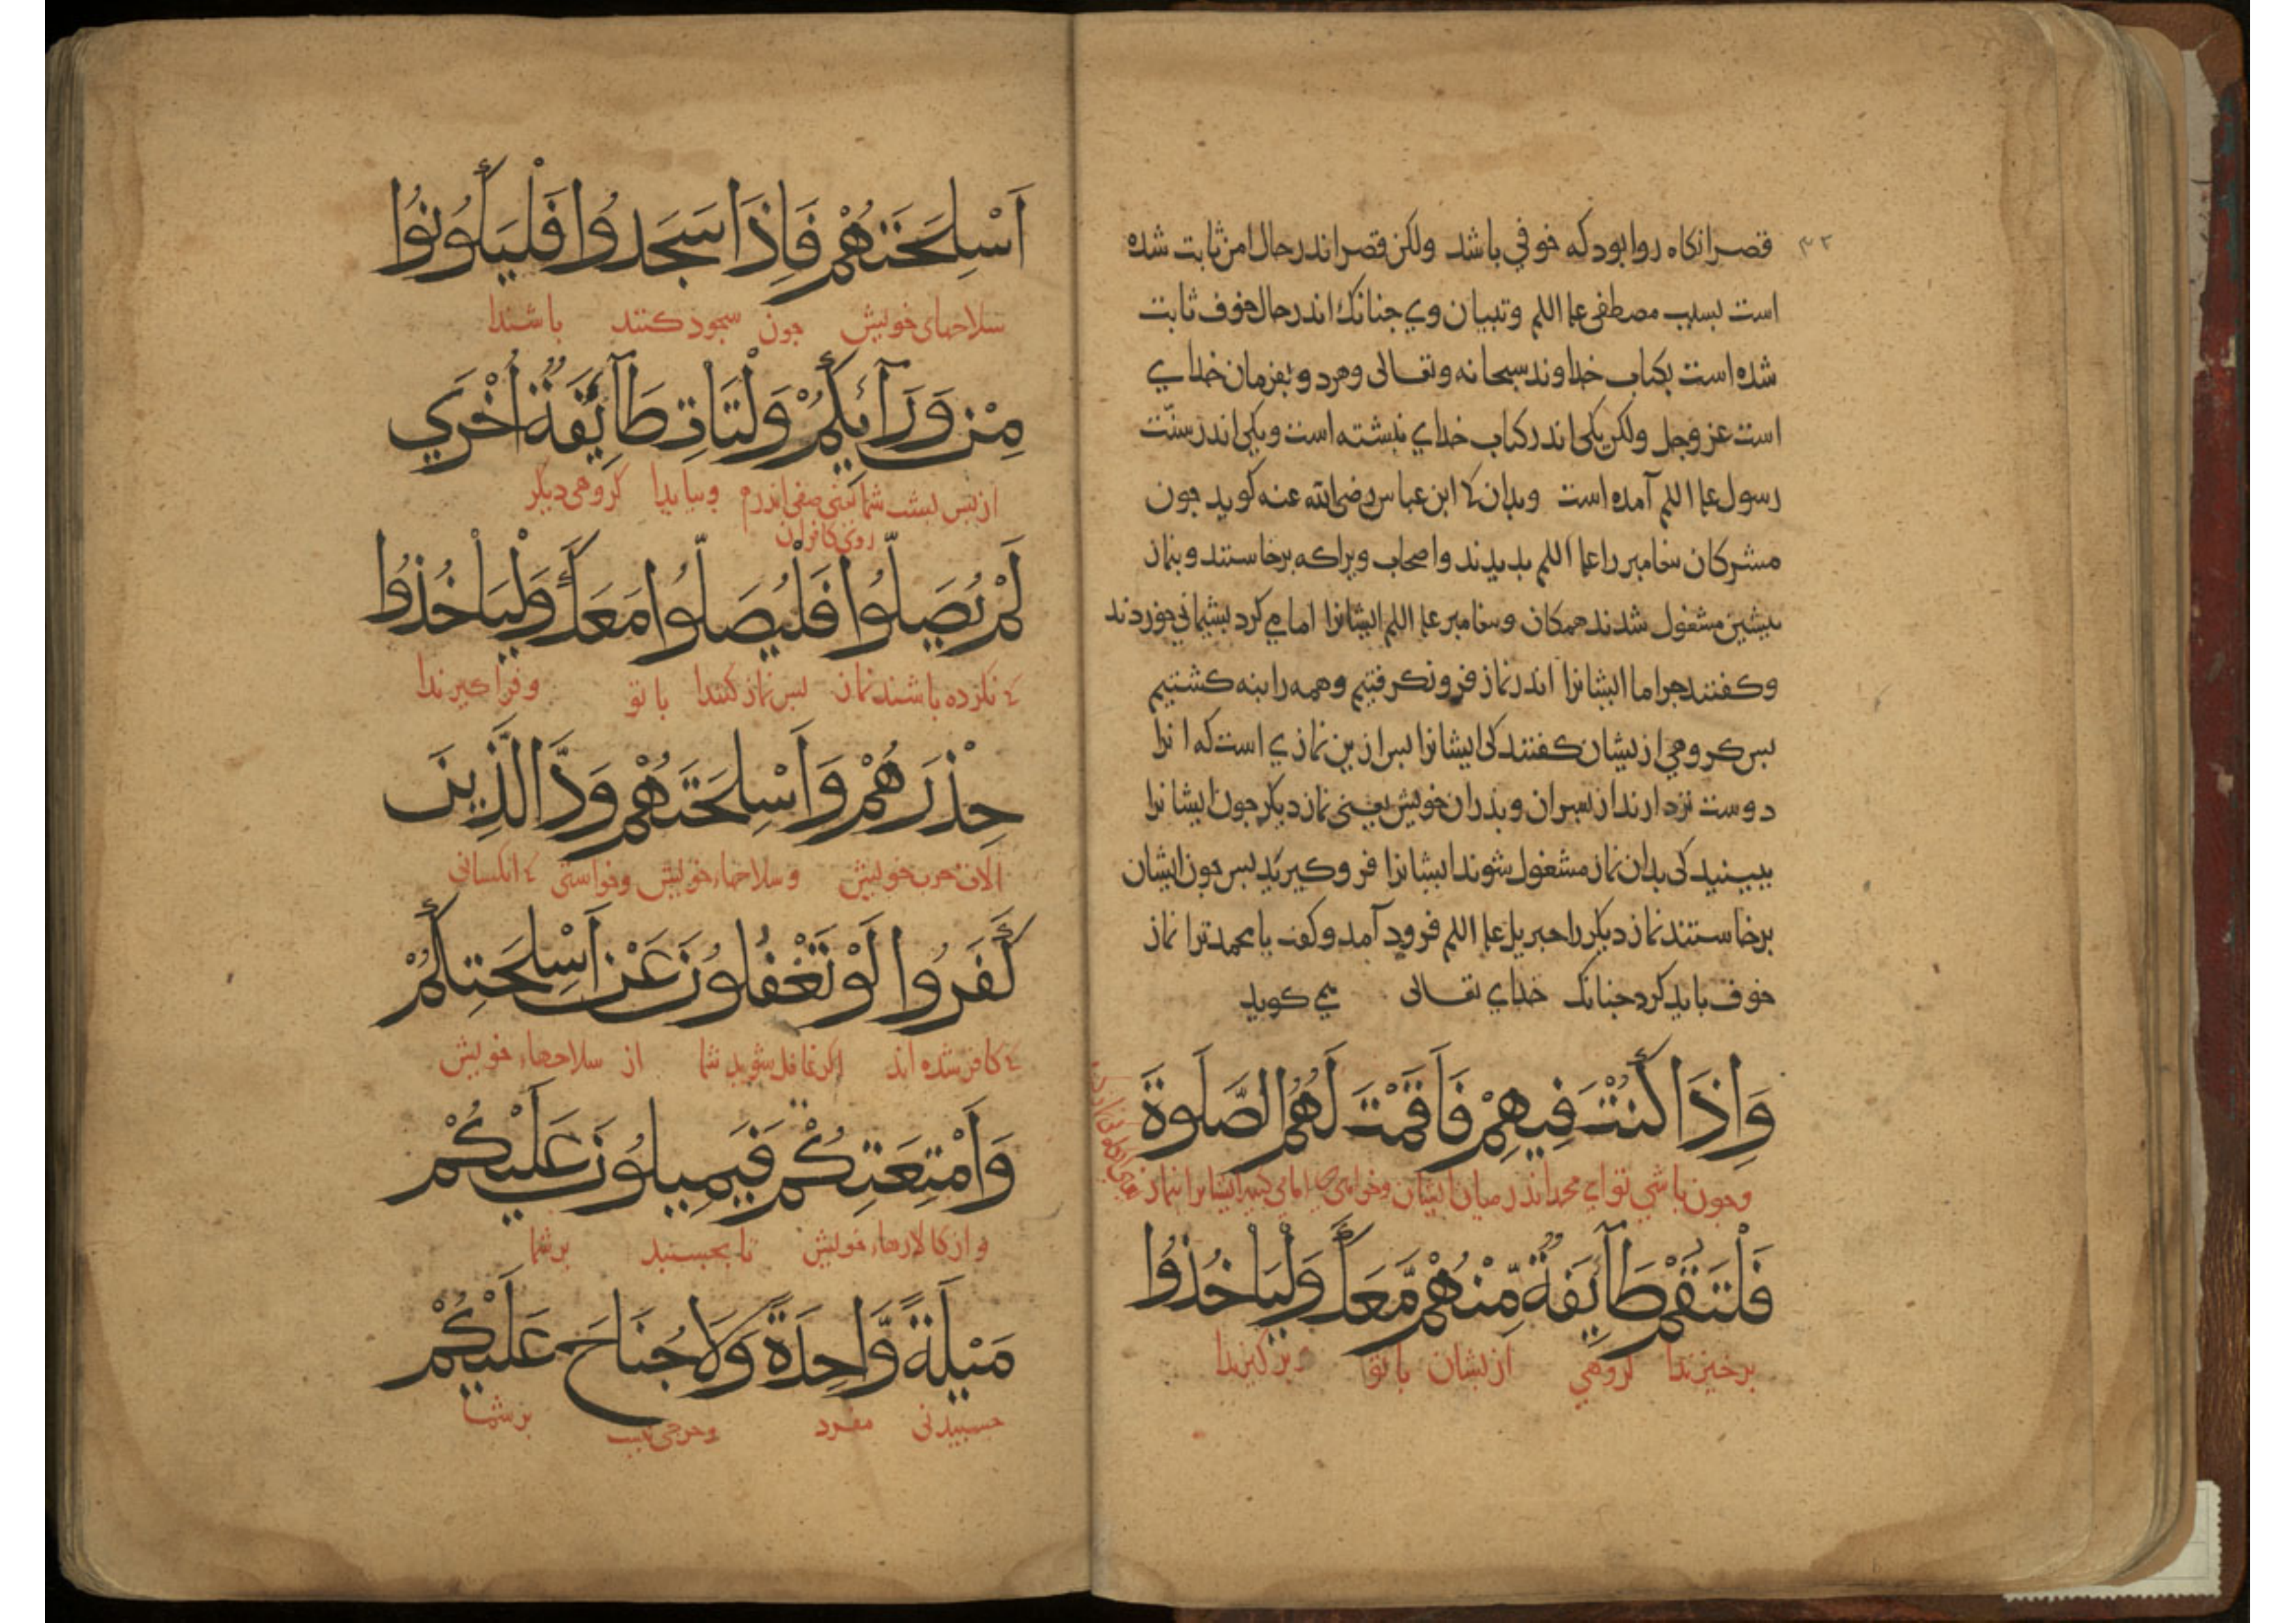 ۳۲
قصر انکاه روا بود که خوفی باشد ولکن قصر اندر حال امن ثابت شده
است بسبب مصطفی علیه اللم وتبیان وی جنانک اندر حال خوف ثابت
شده است بکتاب خداوند سبحانه وتعالی وهر دو بفرمان خدای
است عز وجل ولکن یکی اندر کتاب خدای نبشته است ویکی اندر سنّت
رسول علیه اللم آمده است وبدان که ابن عباس رضی الله عنه کوید جون
مشرکان بیغامبر را علیه اللم بدیدند واصحاب ویرا که برخاستند وبنماز
بیشین مشغول شدند همکان وبیغامبر علیه اللم ایشانرا امامی کرد بشیمانی خوردند
وکفتند جرا ما ایشانرا اندر نماز فرو نکرفتیم وهمه را بنه کشتیم
بس کروهی ازیشان کفتند کی ایشانرا بس ازین نمازی است که انرا
دوست تر دارند از بسران وبدران خویش یعنی نماز دیکر جون ایشانرا
ببینید کی بدان نماز مشغول شوند ایشانرا فرو کیرید بس جون ایشان
برخاستند نماز دیکر را جبریل علیه اللم فرود آمد وکفت یا محمد ترا نماز
خوف باید کرد جنانک خدای تعالی می کوید
وَاِذَا كُنْتَ فِيهِمْ فَاَقَمْتَ لَهُمُ الصَّلٰوةَ
وجون باشی تو ای محمد اندر میان ایشان وخواهی امامی کنی ایشانرا بنماز
فَلْتَقُمْ طَآئِفَةٌ مِّنْهُمْ مَّعَكَ وَلْيَاْخُذُوا
برخیزندا کروهی ازیشان با تو وبر کیرندا
اَسْلِحَتَهُمْ فَاِذَا سَجَدُوا فَلْيَكُونُوا
سلاحهای خویش جون سجود کنند باشندا
مِنْ وَرَآئِكُمْ وَلْتَاْتِ طَآئِفَةٌ اُخْرَي
از بس بشت شما یعنی صفی اندرم وبیایدا کروهی دیکر
روی کافران
لَمْ يُصَلُّوا فَلْيُصَلُّوا مَعَكَ وَلْيَاْخُذُوا
که نکرده باشند نماز بس نماز کنندا با تو وفرا کیرندا
حِذْرَهُمْ وَاَسْلِحَتَهُمْ وَدَّ الَّذِينَ
الات حرب خویش وسلاحهاء خویش وخواستی که انکسانی
كَفَرُوا لَوْ تَغْفُلُونَ عَنْ اَسْلِحَتِكُمْ
که کافر شده اند اکر غافل شوید شما از سلاحهاء خویش
وَاَمْتِعَتِكُمْ فَيَمِيلُونَ عَلَيْكُمْ
واز کالاهاء خویش تا بجسبند بر شما
مَيْلَةً وَّاحِدَةً وَلَا جُنَاحَ عَلَيْكُمْ
جسبیدنی مفرد وحرجی نیست بر شما